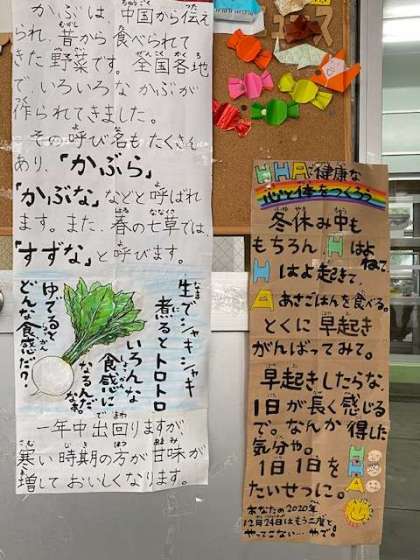 かぶは、中国から伝え
られ、昔から食べられて
きた野菜です。全国各地
で、いろいろなかぶが
作られてきました。
その呼び名もたくさん
あり、「かぶら」
「かぶな」などと呼ばれ
ます。また、春の七草では
「すずな」と呼びます。
生でシャキシャキ
煮るとトロトロ
いろんな
食感に
なるんだ
なぁ。
ゆでるとどんな食感だ？
一年中出回りますが
寒い時期の方が甘味が
増しておいしくなります。
HHAで健康な
心と体をつくろう
冬休み中も
もちろんHはよねて
Hはよ起きて、
Aあさごはんを食べる。
とくに早起き
がんばってみて。
早起きしたらな、
1日が長く感じる
で。なんか得した
気分や。
1日1日を
たいせつに。
HHA
あなたの2020年
12月24日はもう二度と、
やってこない…やで。